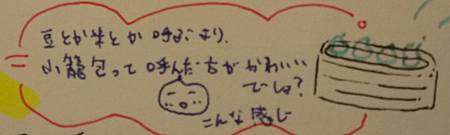 豆とか米とか呼ぶより、
小籠包って呼んだ方がかわいい
でしょ?
こんな感じ